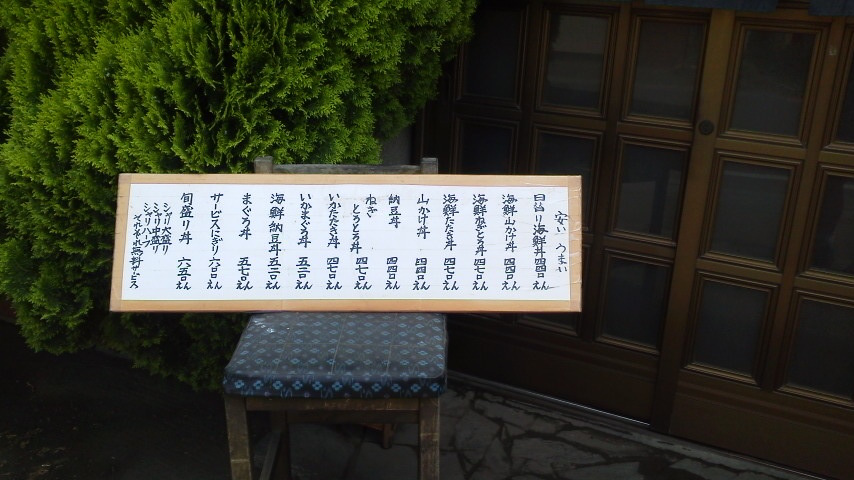 安い うまい
日替り海鮮丼 四四〇えん
海鮮山かけ丼 四四〇えん
海鮮ねぎとろ丼 四七〇えん
海鮮たたき丼 四七〇えん
山かけ丼 四四〇えん
納豆丼 四四〇えん
ねぎとろとろ丼 四七〇えん
いかたたき丼 四七〇えん
いかまぐろ丼 五二〇えん
海鮮納豆丼 五二〇えん
まぐろ丼 五七〇えん
サービスにぎり 六〇〇えん
旬盛り丼 六五〇えん
シャリ大盛り
シャリ中盛り
シャリハーフ
それぞれ無料サービス